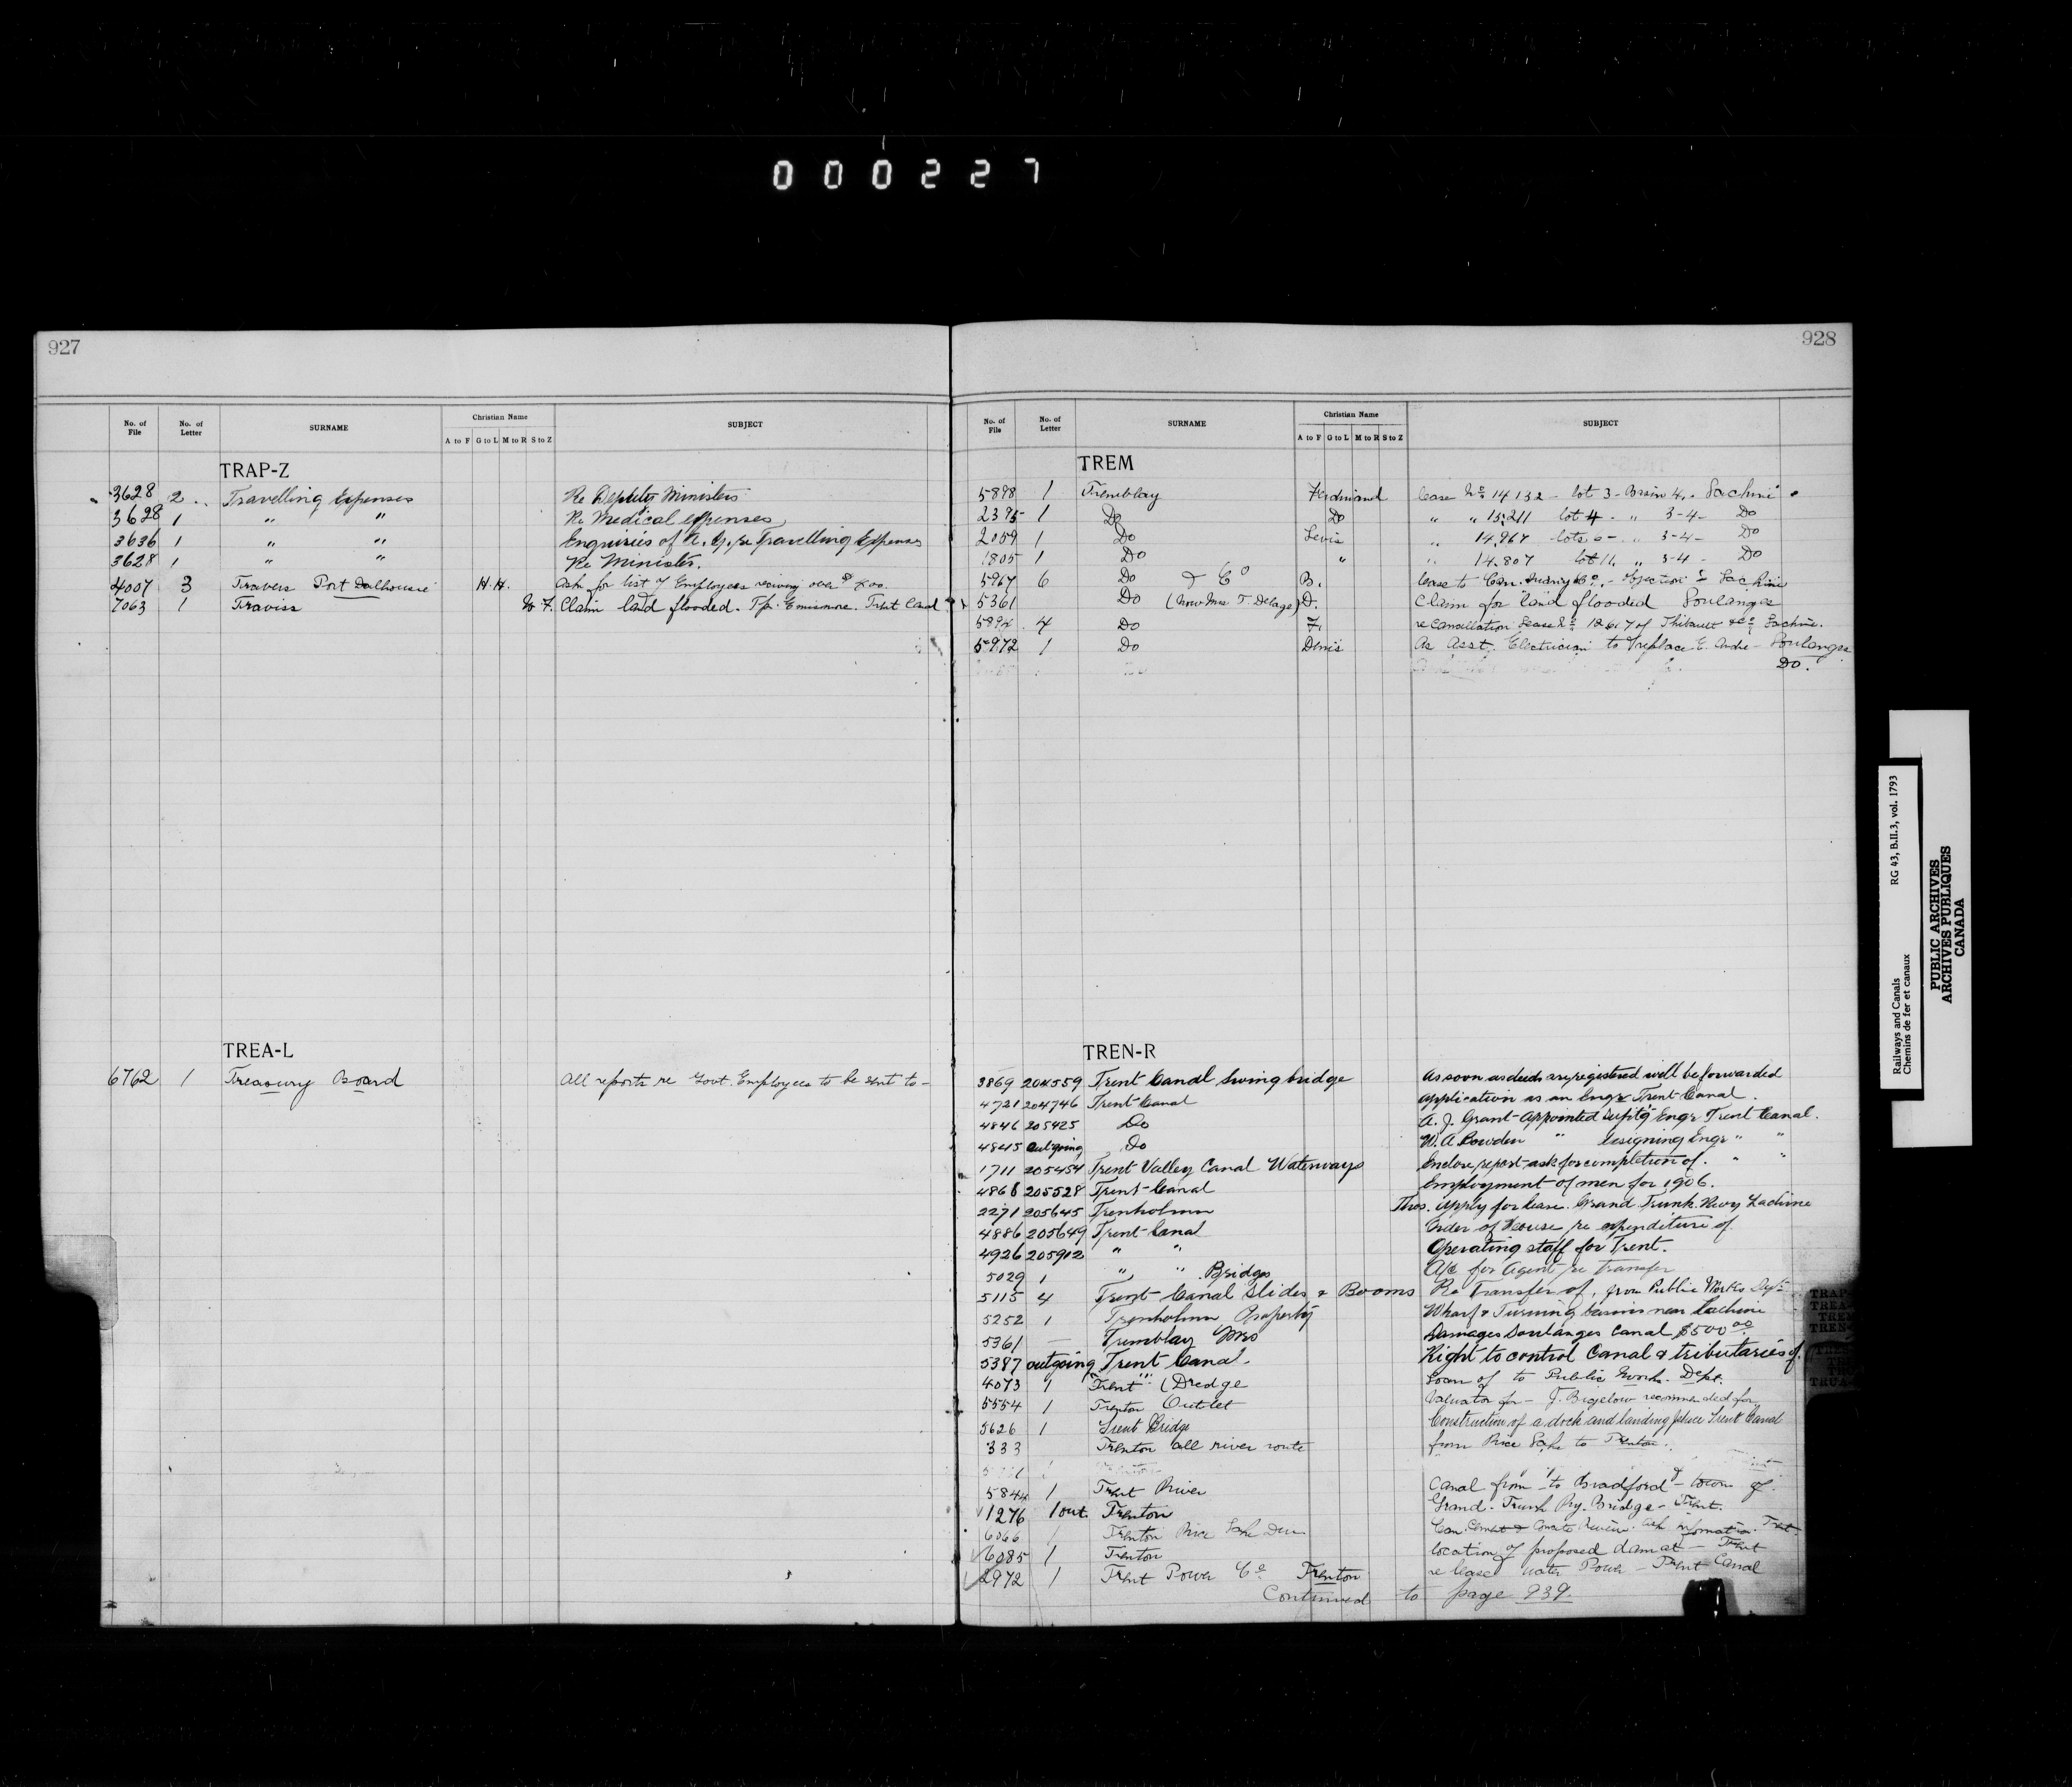 000227
927
No. of File No. of Letter SURNAME Christian Name A to F G to L M to R S to Z SUBJECT
TRAP-Z
3628 2 Travelling Expenses Re Deputy Ministers
3628 1 " " Re Medical expenses
3636 1 " " Enquiries of A. G. re Travelling Expenses
3628 1 " " Re Minister.
4007 3 Travers Port Dalhousie H.H. Ask for list of Employees receiving over
7063 1 Traviss W. F. Claim land flooded. Tp. Ennismore. Trent Canal
TREA-L
6762 1 Treasury Board All reports re Govt. Employees to be sent to -
928
No. of File No. of Letter SURNAME Christian Name A to F G to L M to R S to Z SUBJECT
TREM
5898 1 Tremblay Ferdinand lease No. 14132 - lot 3 - Basin 4. - Lachine
2395 1 Do Do " " 15211 lot 4 - " 3-4- Do
2059 1 Do Levis " 14967 lots 6 - " 3-4- Do
1805 1 Do " " 14.807 lot 11, " 3-4- Do
5967 6 Do & Co B. lease to Can. Co. - Objection Lachine
5361 Do (now Mrs T. Delage) D. Claim for land flooded Soulanges
5894 4 Do F. re Cancellation Lease No. 12617 of Thibault & Co. Lachine.
5972 1 Do Denis As Asst. Electrician to replace E. Andre - Soulanges
Do.
TREN-R
3869 204559 Trent Canal Swing bridge As soon as deeds are registered will be forwarded
4721 204746 Trent Canal Application as an Engr Trent Canal.
4846 205425 Do A. J. Grant - Appointed Supttg Engr Trent Canal.
4845 outgoing Do W. A Bowden " Designing Engr " "
1711 205454 Trent Valley Canal Waterways Enclose report - ask for completion of. " "
4868 205528 Trent Canal Employment of men for 1906.
2271 205645 Trenholme Thos. Apply for lease. Grand Trunk Rwy Lachine
4886 205649 Trent Canal Order of House re expenditure of
4926 205902 " " Operating staff for Trent.
5029 1 " " Bridges A/c for Agent re transfer
5115 4 Trent Canal Slides & Booms Re Transfer of, from Public Works Dept
5252 1 Trenholme Property Wharf & Turning basins near Lachine
5361 — Tremblay Mrs Damages Soulanges Canal $500.00
5387 outgoing Trent Canal. Right to control Canal & tributaries of
4073 1 Trent (Dredge Loan of to Public Works. Dept.
5554 1 Trenton Outlet Valuator for - J. Bigelow recommended for
5626 1 Trent Bridge Construction of a dock and landing place Trent Canal
333 Trenton all river route from Rice Lake to Trenton.
5844 1 Trent River Canal from to Bradford - town of
1276 1 out. Trenton Grand. Trunk Ry. Bridge - Trent.
6066 1 Trenton Rice Lake Can. Cement & Concrete Review. Ask information Trent
6085 1 Trenton location of proposed dam at - Trent
2972 1 Trent Power Co. Trenton re lease water Power - Trent Canal
Continued to page 939.
Railways and Canals RG 43, B.II.3, vol. 1793
Chemins de fer et canaux
PUBLIC ARCHIVES
ARCHIVES PUBLIQUES
CANADA